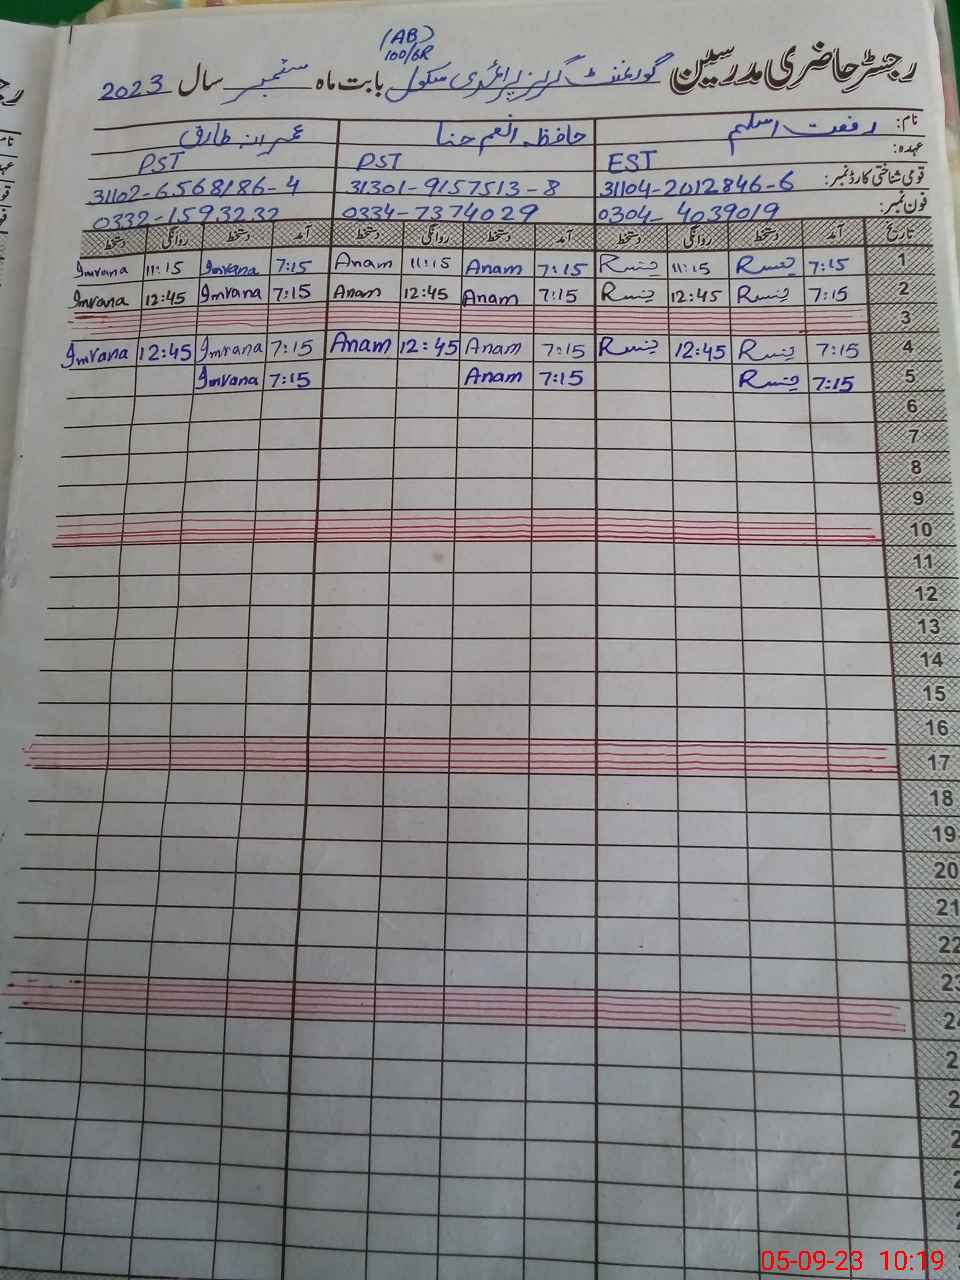 (AB)
100/6R
رجسٹر حاضری مدرسین گورنمنٹ گرلز پرائمری سکول بابت ماہ ستمبر سال 2023
نام: رفعت اسلم حافظہ انعم حنا عمرانہ طارق
عہدہ: EST PST PST
قومی شناختی کارڈ نمبر: 31104-2012846-6 31301-9157513-8 31102-6568186-4
فون نمبر: 0304-4039019 0334-7374029 0332-1593232
تاریخ آمد دستخط روانگی دستخط آمد دستخط روانگی دستخط آمد دستخط روانگی دستخط
1 7:15 11:15 7:15 Anam 11:15 Anam 7:15 Imrana 11:15 Imrana
2 7:15 12:45 7:15 Anam 12:45 Anam 7:15 Imrana 12:45 Imrana
3
4 7:15 12:45 7:15 Anam 12:45 Anam 7:15 Imrana 12:45 Imrana
5 7:15 7:15 Anam 7:15 Imrana
6
7
8
9
10
11
12
13
14
15
16
17
18
19
20
21
22
23
24
05-09-23 10:19